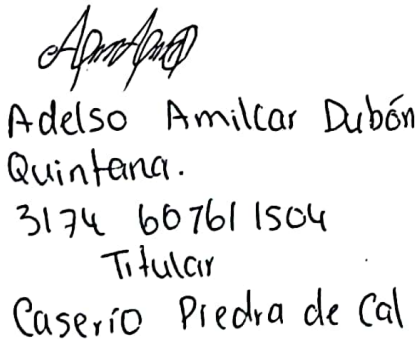 Adelso Amilcar Dubón
Quintana.
3174 607611504
Titular
Caserío Piedra de Cal